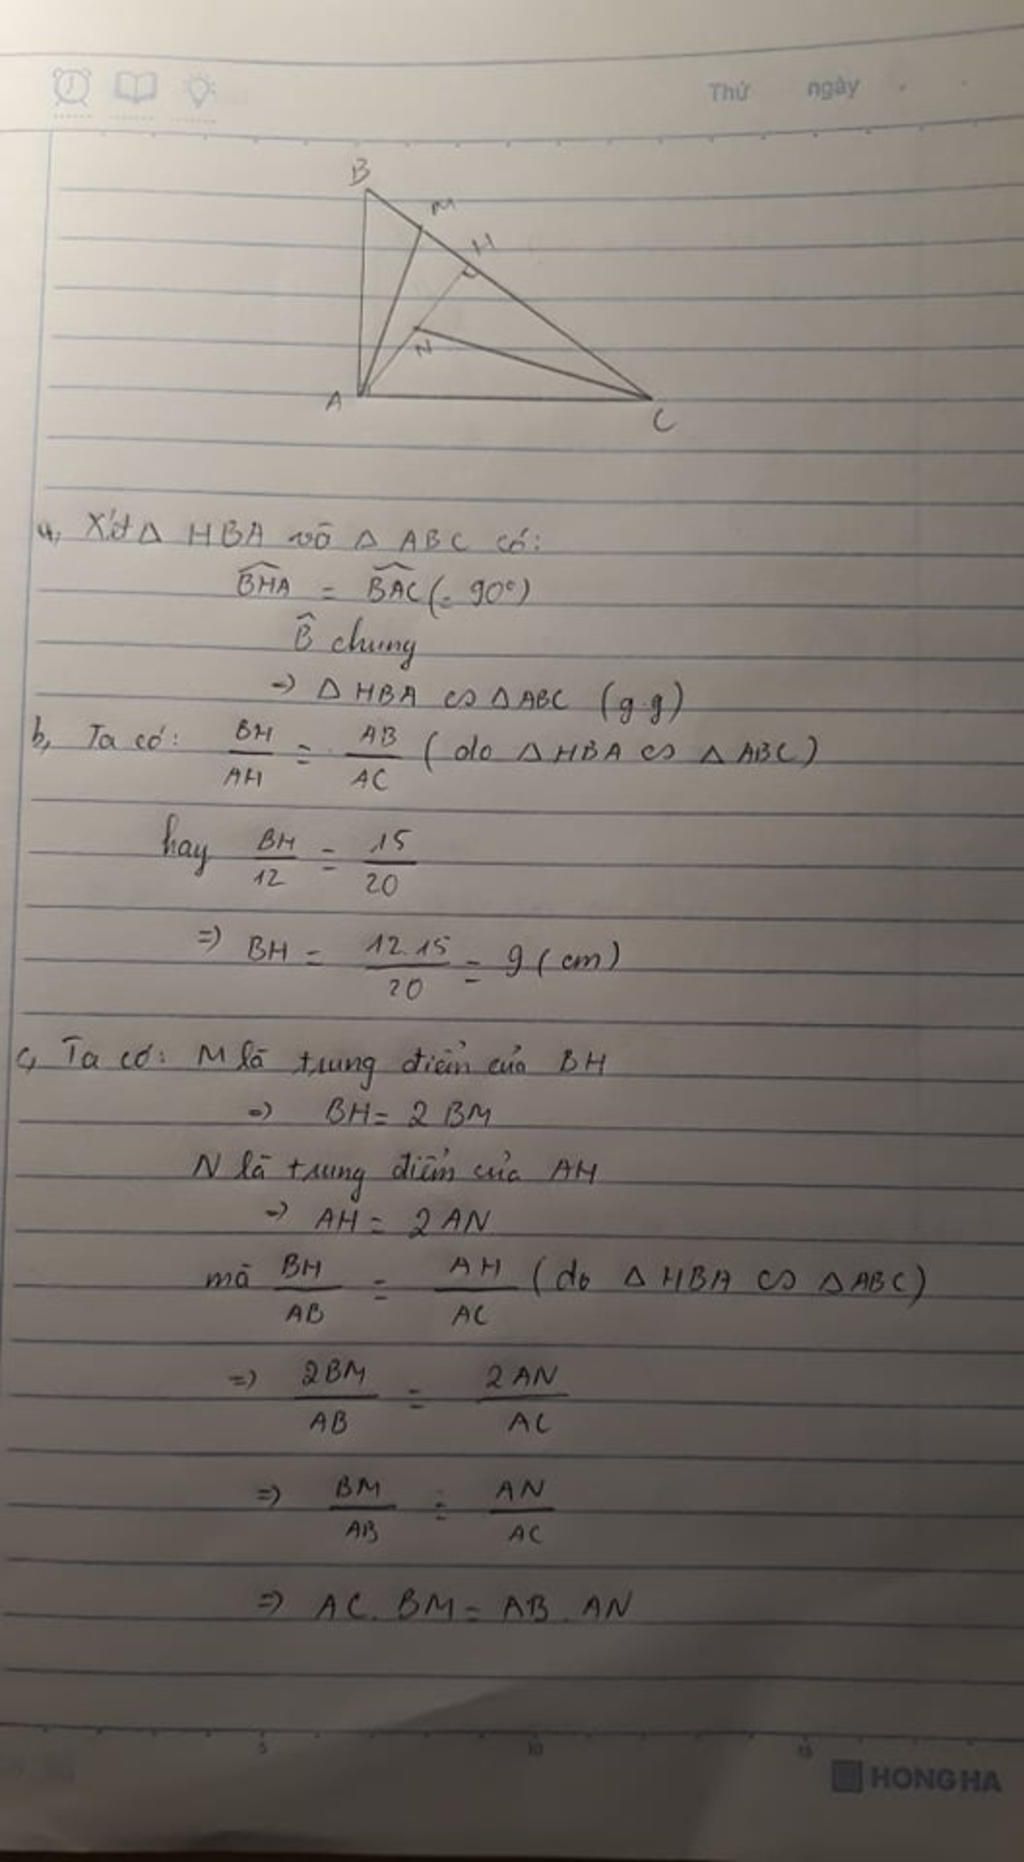 Thứ ngày
B
M
H
N
A
C
a, Xét Δ HBA và Δ ABC có:
$\widehat{BHA}$ = $\widehat{BAC}$ (= 90°)
$\widehat{B}$ chung
=> Δ HBA ∽ Δ ABC (g.g)
b, Ta có: $\frac{BH}{AH}$ = $\frac{AB}{AC}$ (do Δ HBA ∽ Δ ABC)
hay $\frac{BH}{12}$ = $\frac{15}{20}$
=> BH = $\frac{12.15}{20}$ = 9 (cm)
c, Ta có: M là trung điểm của BH
=> BH = 2 BM
N là trung điểm của AH
=> AH = 2 AN
mà $\frac{BH}{AB}$ = $\frac{AH}{AC}$ (do Δ HBA ∽ Δ ABC)
=> $\frac{2BM}{AB}$ = $\frac{2AN}{AC}$
=> $\frac{BM}{AB}$ = $\frac{AN}{AC}$
=> AC. BM = AB. AN
5 10 15
HONG HA